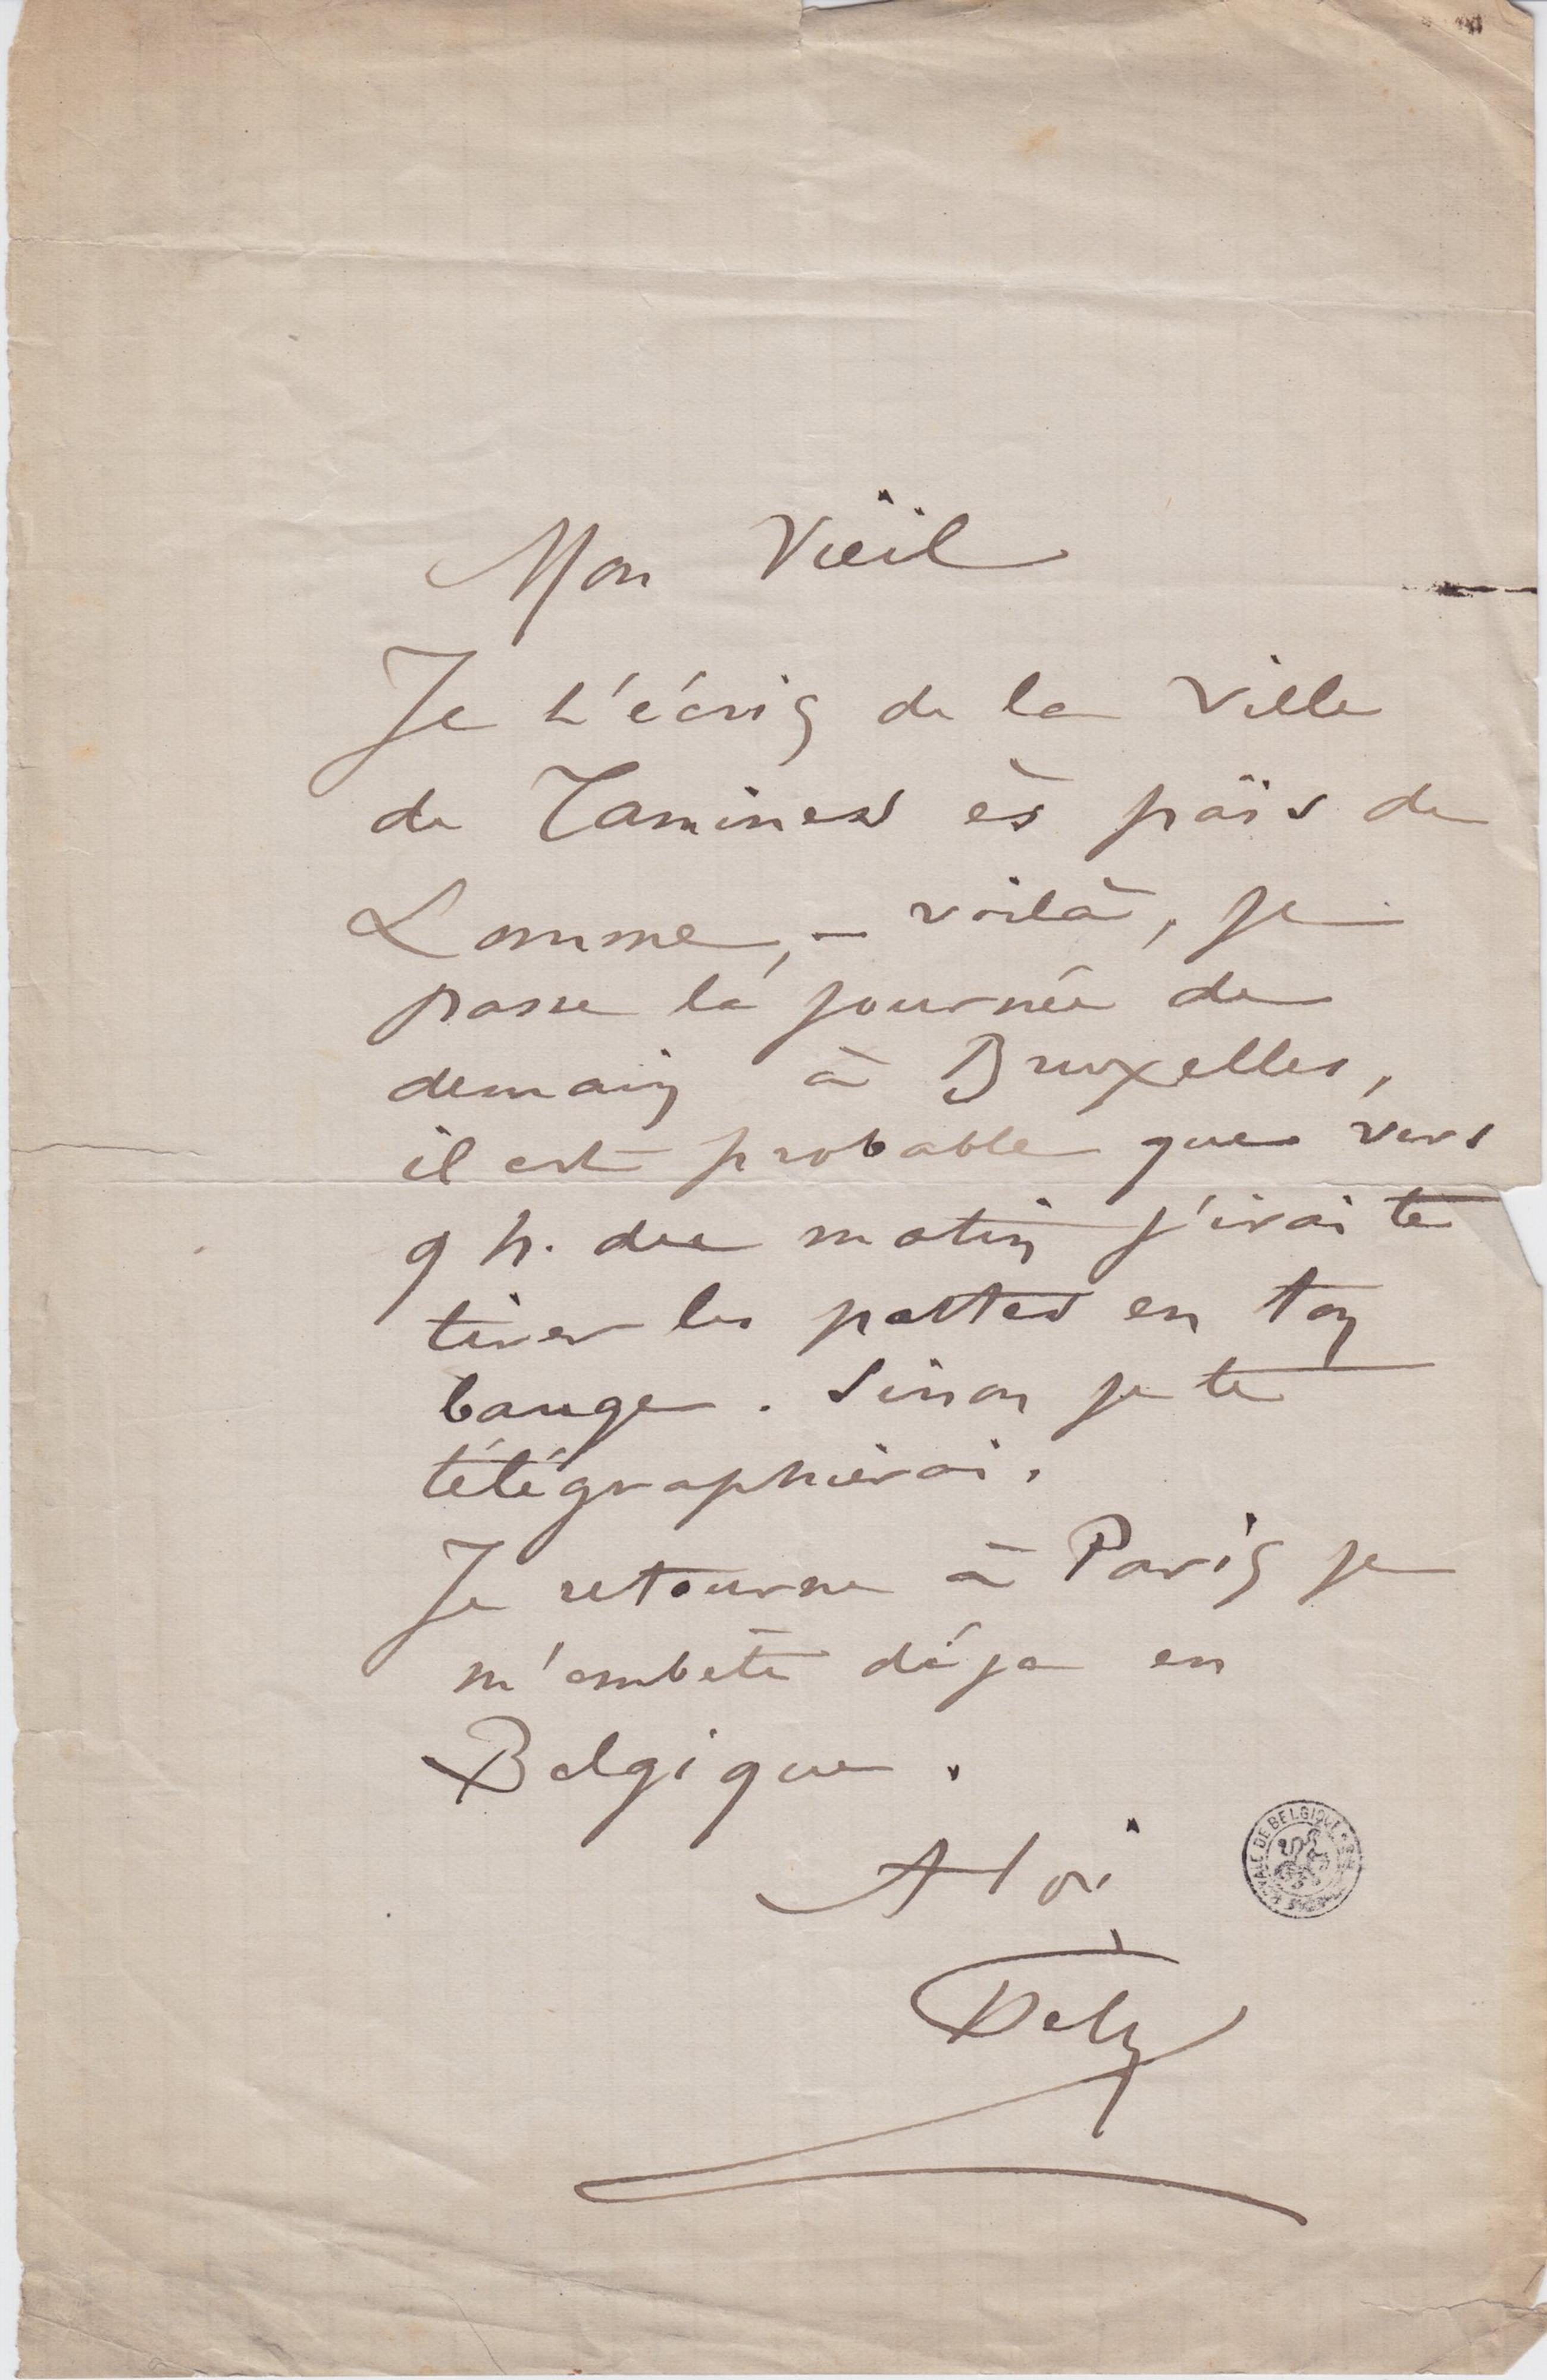 Mon Vieil
Je t'écris de la Ville
de Tamines ès païs de
Lomme, – voilà, je
passe la journée de
demain à Bruxelles,
il est probable que vers
9 h. du matin j'irai te
tirer les pattes en ton
bauge. Sinon je te
télégraphierai.
Je retourne à Paris je
m'embête déja en
Belgique.
A toi
DE BELGIQUE